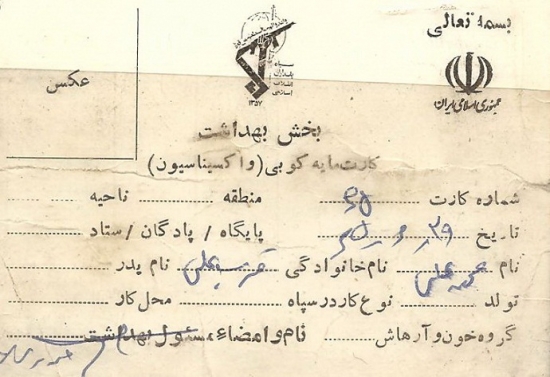 بسمه تعالی
جمهوری اسلامی ایران
سپاه
پاسداران
انقلاب
اسلامی
۱۳۵۷
عکس
بخش بهداشت
کارت مایه کوبی (واکسیناسیون)
شماره کارت منطقه ناحیه
تاریخ ۲۹ پایگاه / پادگان / ستاد
نام نام خانوادگی نام پدر
تولد نوع کار در سپاه محل کار
گروه خون و آرهاش نام و امضاء مسئول بهداشت